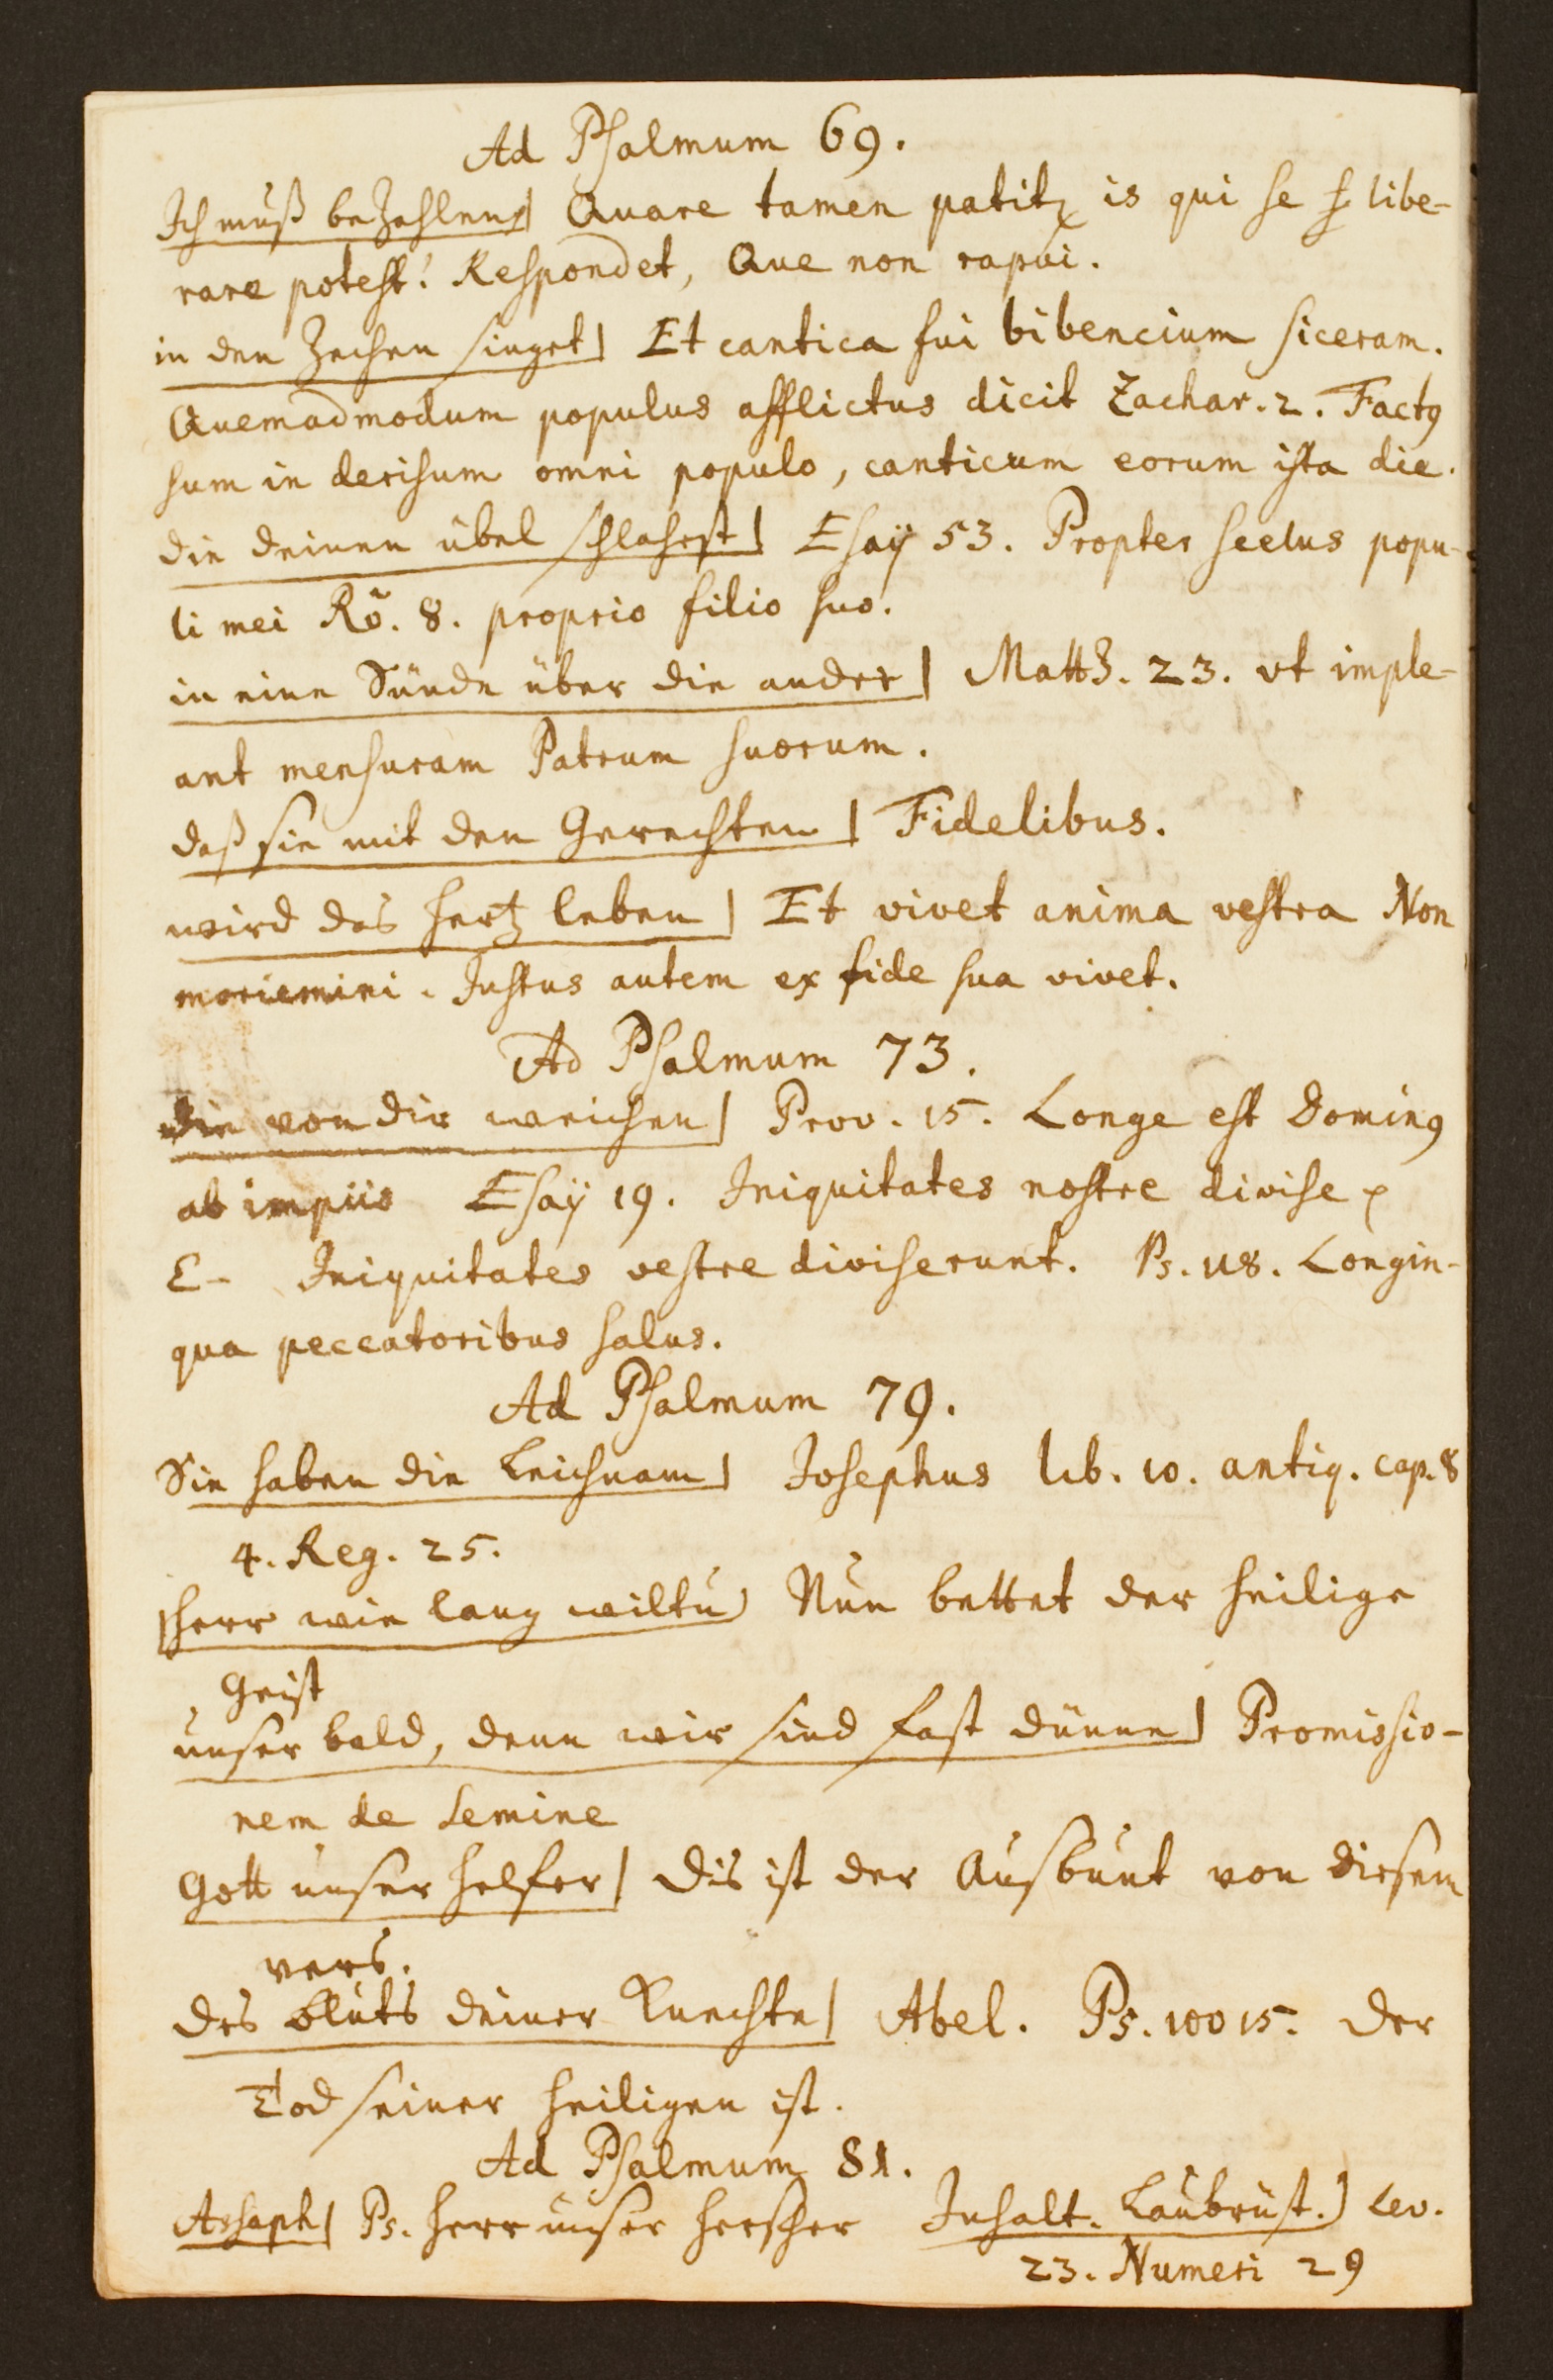 Ad Psalmum 69.
Ich muß bezahlen | Quare tamen patitur is qui se libe-
rare potest? Respondet, Que non rapui.
in den Zechen singet | Et cantica fui bibencium siceram.
Quemadmodum populus afflictus dicit Zachar. 2. Factꝰ
sum in derisum omni populo, canticum eorum ista die.
die deinen übel schlahest | Esaÿ 53. Propter scelus popu-
li mei Rõ. 8. proprio filio suo.
in eine Sünde über die ander | Matth. 23. vt imple-
ant mensuram Patrum suorum.
daß sie mit den Gerechten | Fidelibus.
wird das hertz leben | Et vivet anima vestra Non
moriemini. Justus autem ex fide sua vivet.
Ad Psalmum 73.
die von dir weichen | Prov. 15. Longe est Dominꝰ
ab impiis Esaÿ 19. Iniquitates nostre divise
E- Iniquitates vestre diviserunt. Ps. 118. Longin-
qua peccatoribus salus.
Ad Psalmum 79.
Sie haben die Leichnam | Josephus lib. 10. antiq. cap. 8
4. Reg. 25.
Herr wie lang wiltu | Nun bettet der heilige
Geist
unser bald, denn wir sind fast dünne | Promissio-
nem de semine
Gott unser helfer | dis ist der Ausbunt von diesem
vers.
des bluts deiner Knechte | Abel. Ps. 100 15. der
Tod seiner heiligen ist.
Ad Psalmum 81.
Assaph | Ps. Herr unser herscher Inhalt. Laubrüst. | Lev.
23. Numeri 29